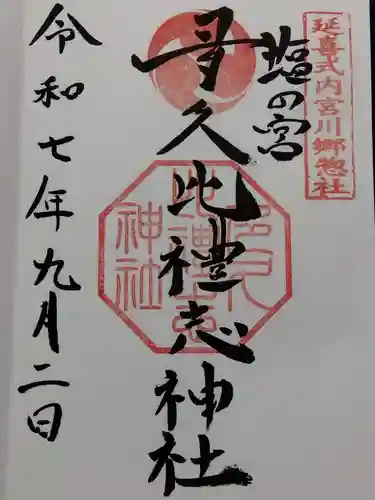 延喜式内宮川郷惣社
塩の宮
多久比禮志神社
多久
比禮志
神社
令和七年九月二日